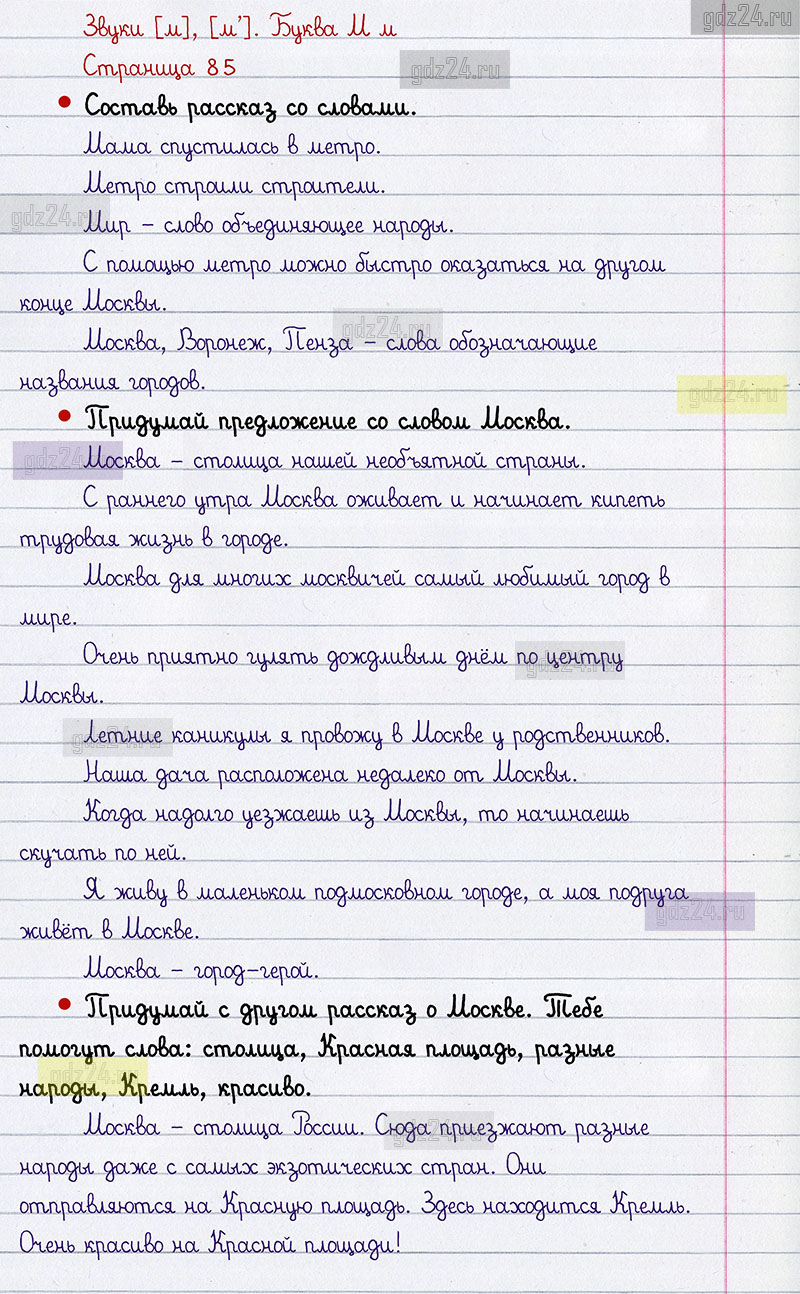 gdz24.ru
Звуки [м], [м']. Буква М м
Страница 85
gdz24.ru
• Составь рассказ со словами.
Мама спустилась в метро.
Метро строили строители.
gdz24.ru
Мир – слово объединяющее народы.
С помощью метро можно быстро оказаться на другом
конце Москвы.
gdz24.ru
Москва, Воронеж, Пенза – слова обозначающие
названия городов.
gdz24.ru
• Придумай предложение со словом Москва.
gdz24
Москва – столица нашей необъятной страны.
С раннего утра Москва оживает и начинает кипеть
трудовая жизнь в городе.
Москва для многих москвичей самый любимый город в
мире.
Очень приятно гулять дождливым днём по центру
gdz24.ru
Москвы.
gdz24.ru
Летние каникулы я провожу в Москве у родственников.
Наша дача расположена недалеко от Москвы.
Когда надолго уезжаешь из Москвы, то начинаешь
скучать по ней.
Я живу в маленьком подмосковном городе, а моя подруга
gdz24.ru
живёт в Москве.
Москва – город-герой.
• Придумай с другом рассказ о Москве. Тебе
помогут слова: столица, Красная площадь, разные
gdz24.ru
народы, Кремль, красиво.
Москва – столица России. Сюда приезжают разные
gdz24.ru
народы даже с самых экзотических стран. Они
отправляются на Красную площадь. Здесь находится Кремль.
Очень красиво на Красной площади!